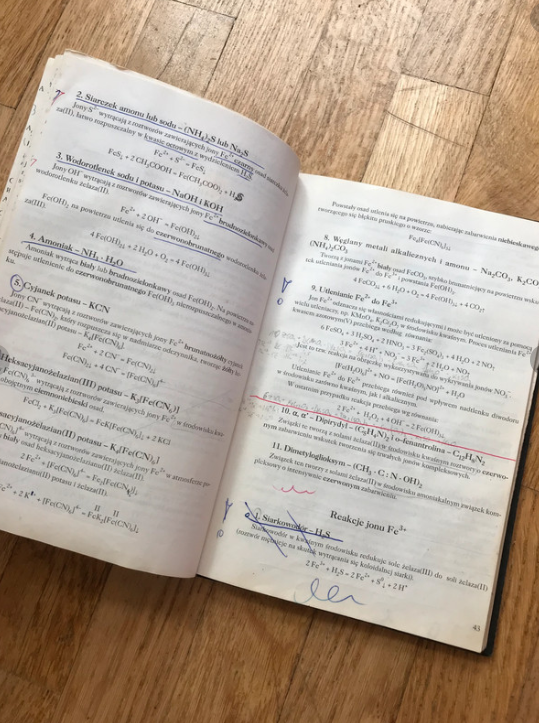 2. Siarczek amonu lub sodu – (NH₄)₂S lub Na₂S
Jony S²⁻ wytrącają z roztworów zawierających jony Fe²⁺ czarny osad siarczku żela-
za(II), łatwo rozpuszczalny w kwasie octowym z wydzieleniem H₂S
Fe²⁺ + S²⁻ = FeS↓
FeS↓ + 2 CH₃COOH = Fe(CH₃COO)₂ + H₂S
3. Wodorotlenek sodu i potasu – NaOH i KOH
Jony OH⁻ wytrącają z roztworów zawierających jony Fe²⁺ brudnozielonkawy osad
wodorotlenku żelaza(II).
Fe²⁺ + 2 OH⁻ = Fe(OH)₂↓
Fe(OH)₂ na powietrzu utlenia się do czerwonobrunatnego wodorotlenku żela-
za(III).
4 Fe(OH)₂↓ + 2 H₂O + O₂ = 4 Fe(OH)₃↓
4. Amoniak – NH₃ · H₂O
Amoniak wytrąca biały lub brudnozielonkawy osad Fe(OH)₂. Na powietrzu na-
stępuje utlenienie do czerwonobrunatnego Fe(OH)₃ nierozpuszczalnego w
5. Cyjanek potasu – KCN
Jony CN⁻ wytrącają z roztworów zawierających jony Fe²⁺ brunatnożółty cyjanek
żelaza(II) – Fe(CN)₂, który rozpuszcza się w nadmiarze odczynnika, tworząc żółty
potasu – K₄[Fe(CN)₆].
Fe²⁺ + 2 CN⁻ = Fe(CN)₂↓
Fe(CN)₂↓ + 4 CN⁻ = [Fe(CN)₆]⁴⁻
Heksacyjanożelazian(III) potasu – K₃[Fe(CN)₆]
wytrącają z roztworów zawierających jony Fe²⁺ w środowisku
obojętnym ciemnoniebieski osad.
FeCl₂ + K₃[Fe(CN)₆] = FeK[Fe(CN)₆]↓ + 2 KCl
potasu – K₄[Fe(CN)₆]
wytrącają z roztworów zawierających jony Fe²⁺ w atmosferze
biały osad heksacyjanożelazianu(II) żelaza(II).
2 Fe²⁺ + [Fe(CN)₆]⁴⁻ = Fe₂[Fe(CN)₆]↓
potasu i żelaza(II).
Fe²⁺ + 2 K⁺ + [Fe(CN)₆]⁴⁻ = FeK₂[Fe(CN)₆]↓
Powstały osad utlenia się na powietrzu, nabierając zabarwienia niebieskiego
tworzącego się błękitu pruskiego o wzorze:
Fe₄[Fe(CN)₆]₃↓
8. Węglany metali alkalicznych i amonu – Na₂CO₃, K₂CO₃
(NH₄)₂CO₃
Tworzą z jonami Fe²⁺ biały osad FeCO₃, szybko brunatniejący na powietrzu wsku-
tek utleniania jonów Fe²⁺ do Fe³⁺ i powstania Fe(OH)₃.
4 FeCO₃↓ + 6 H₂O + O₂ = 4 Fe(OH)₃↓ + 4 CO₂↑
9. Utlenianie Fe²⁺ do Fe³⁺
Jon Fe²⁺ odznacza się własnościami redukującymi i może być utleniony za pomocą
wielu utleniaczy, np. KMnO₄, K₂Cr₂O₇ w środowisku kwaśnym. Proces utleniania Fe²⁺
kwasem azotowym(V) przebiega według równania:
6 FeSO₄ + 3 H₂SO₄ + 2 HNO₃ = 3 Fe₂(SO₄)₃ + 4 H₂O + 2 NO↑
3 Fe²⁺ + 4 H⁺ + NO₃⁻ = 3 Fe³⁺ + 2 H₂O + NO↑
tzw. reakcja na obrączkę wykorzystywana do wykrywania jonów NO₃⁻.
[Fe(H₂O)₆]²⁺ + NO = [Fe(H₂O)₅NO]²⁺ + H₂O
Utlenianie Fe²⁺ do Fe³⁺ przebiega również pod wpływem nadtlenku wodoru
w środowisku zarówno kwaśnym, jak i alkalicznym.
W ostatnim przypadku reakcja przebiega wg równania:
2 Fe²⁺ + H₂O₂ + 4 OH⁻ = 2 Fe(OH)₃↓
10. α, α' – Dipirydyl – (C₅H₄N)₂ i o-fenantrolina – C₁₂H₈N₂
Związki te tworzą z solami żelaza(II) w środowisku kwaśnym roztwory o czerwo-
nym zabarwieniu wskutek tworzenia się trwałych jonów kompleksowych.
11. Dimetyloglioksym – (CH₃ · C : N · OH)₂
Związek ten tworzy z solami żelaza(II) w środowisku amoniakalnym związek kom-
pleksowy o intensywnie czerwonym zabarwieniu.
Reakcje jonu Fe³⁺
1. Siarkowodór – H₂S
Siarkowodór w kwaśnym środowisku redukuje sole żelaza(III) do soli żelaza(II)
(roztwór mętnieje na skutek wytrącania się koloidalnej siarki).
2 Fe³⁺ + H₂S = 2 Fe²⁺ + S⁰↓ + 2 H⁺
43